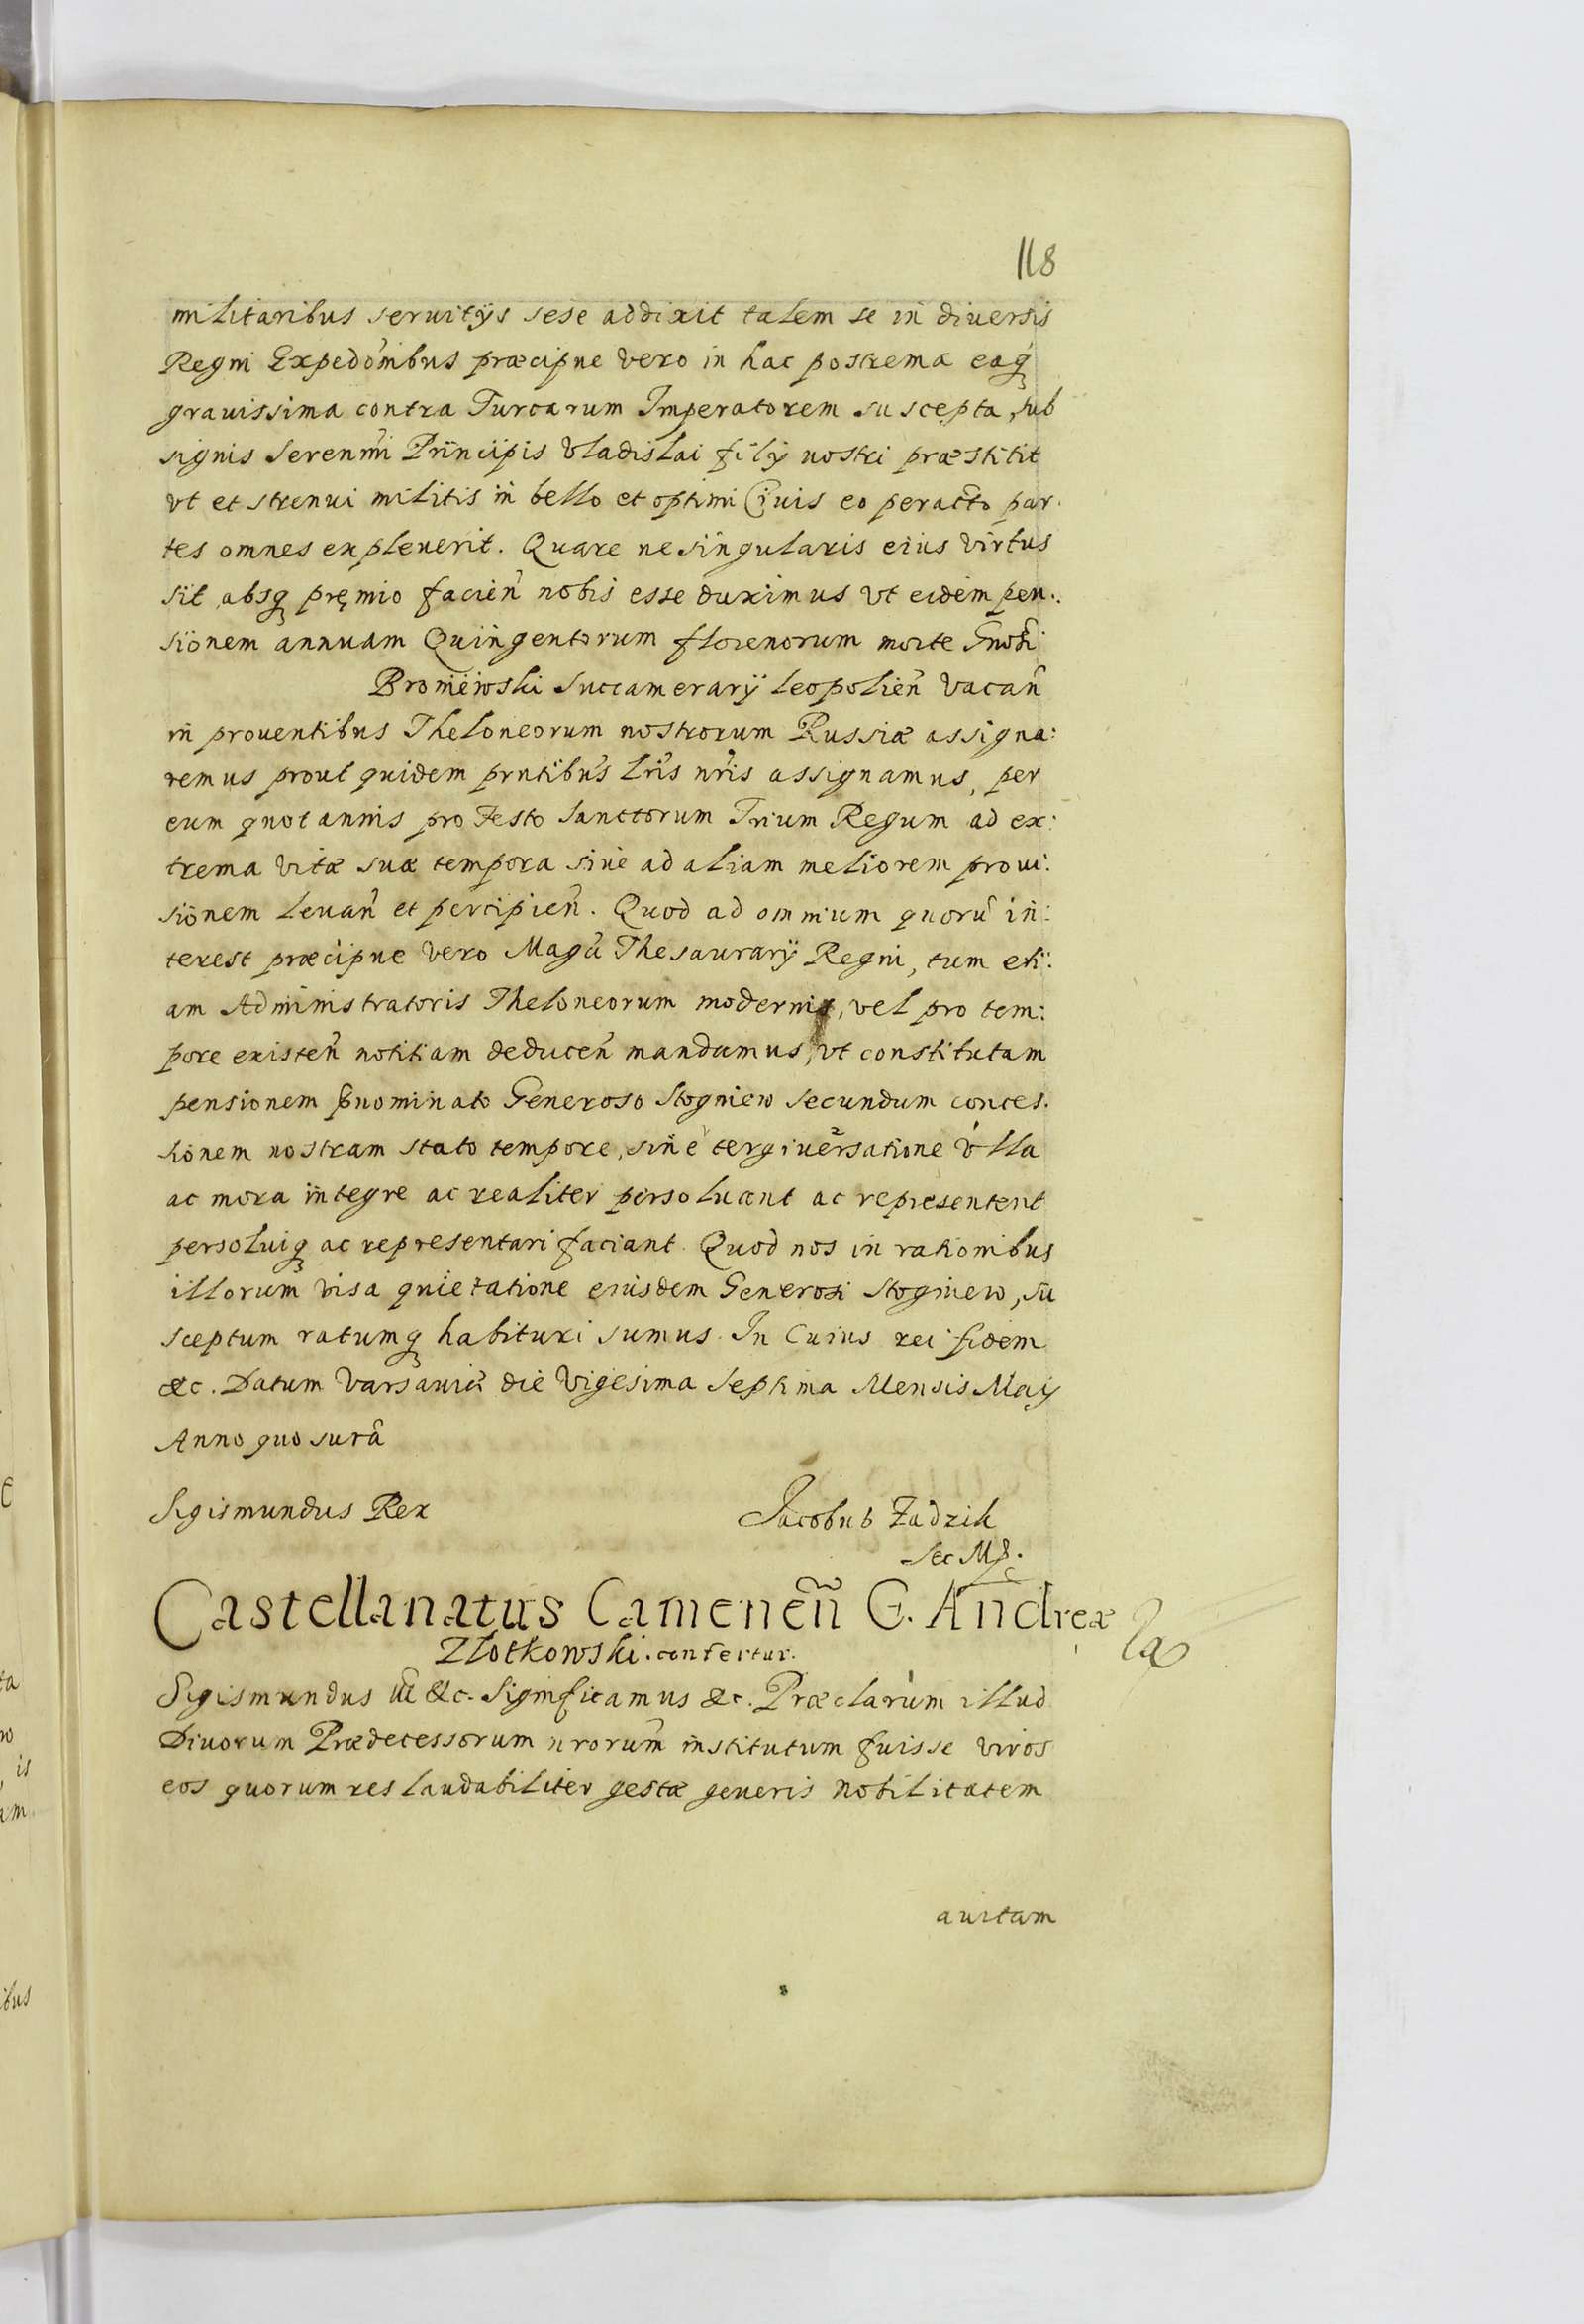 118
militaribus seruitÿs sese addixit talem se in diuersis
Regni Expedõnibus præcipue vero in hac postrema eaq̨
grauissima contra Turcarum Imperatorem suscepta, sub
signis Serenmi Principis Vladislai filÿ nostri præstitit
vt et strenui militis in bello et optimi Ciuis eo peracto par.
tes omnes expleuerit. Quare ne singularis eius virtus
sit absq̨ pręmio facien̄ nobis esse duximus vt eidem pen:
sionem annuam Quingentorum florenorum morte Gnosi
Broniewski Succamerarÿ Leopolien̄ vacan̄
in prouentibus Theloneorum nostrorum Russiæ assigna:
remus prout quidem prntibus lris nris assignamus, per
eum quotannis pro Festo Sanctorum Trium Regum ad ex:
trema vitæ suæ tempora siue ad aliam meliorem proui:
sionem leuan̄ et percipien̄. Quod ad omnium quorū in:
terest præcipue vero Magci Thesaurarÿ Regni, tum eti:
am Administratoris Theloneorum moderni, vel pro tem:
pore existen̄ notitiam deducen̄ mandamus, vt constitutam
pensionem p̄nominato Generoso Stogniew secundum conces.
sionem nostram stato tempore, sine tergiuersatione vlla
ac mora integre ac realiter persoluant ac representent
persoluiq̨ ac representari faciant. Quod nos in rationibus
illorum visa quietatione eiusdem Generosi Stogniew, su
sceptum ratumq̨ habituri sumus. In Cuius rei fidem
&c. Datum Varsauiæ die Vigesima Septima Mensis Maÿ
Anno quo surā
Sigismundus Rex
Jacobus Zadzik
Sec M
Castellanatus Camenen̄ G. Andreæ
Zlotkowski confertur.
Sigismundus &c. Significamus &c. Præclarum illud
Diuorum Prædecessorum nrorum institutum fuisse viros
eos quorum res laudabiliter gestæ generis nobilitatem
auitam